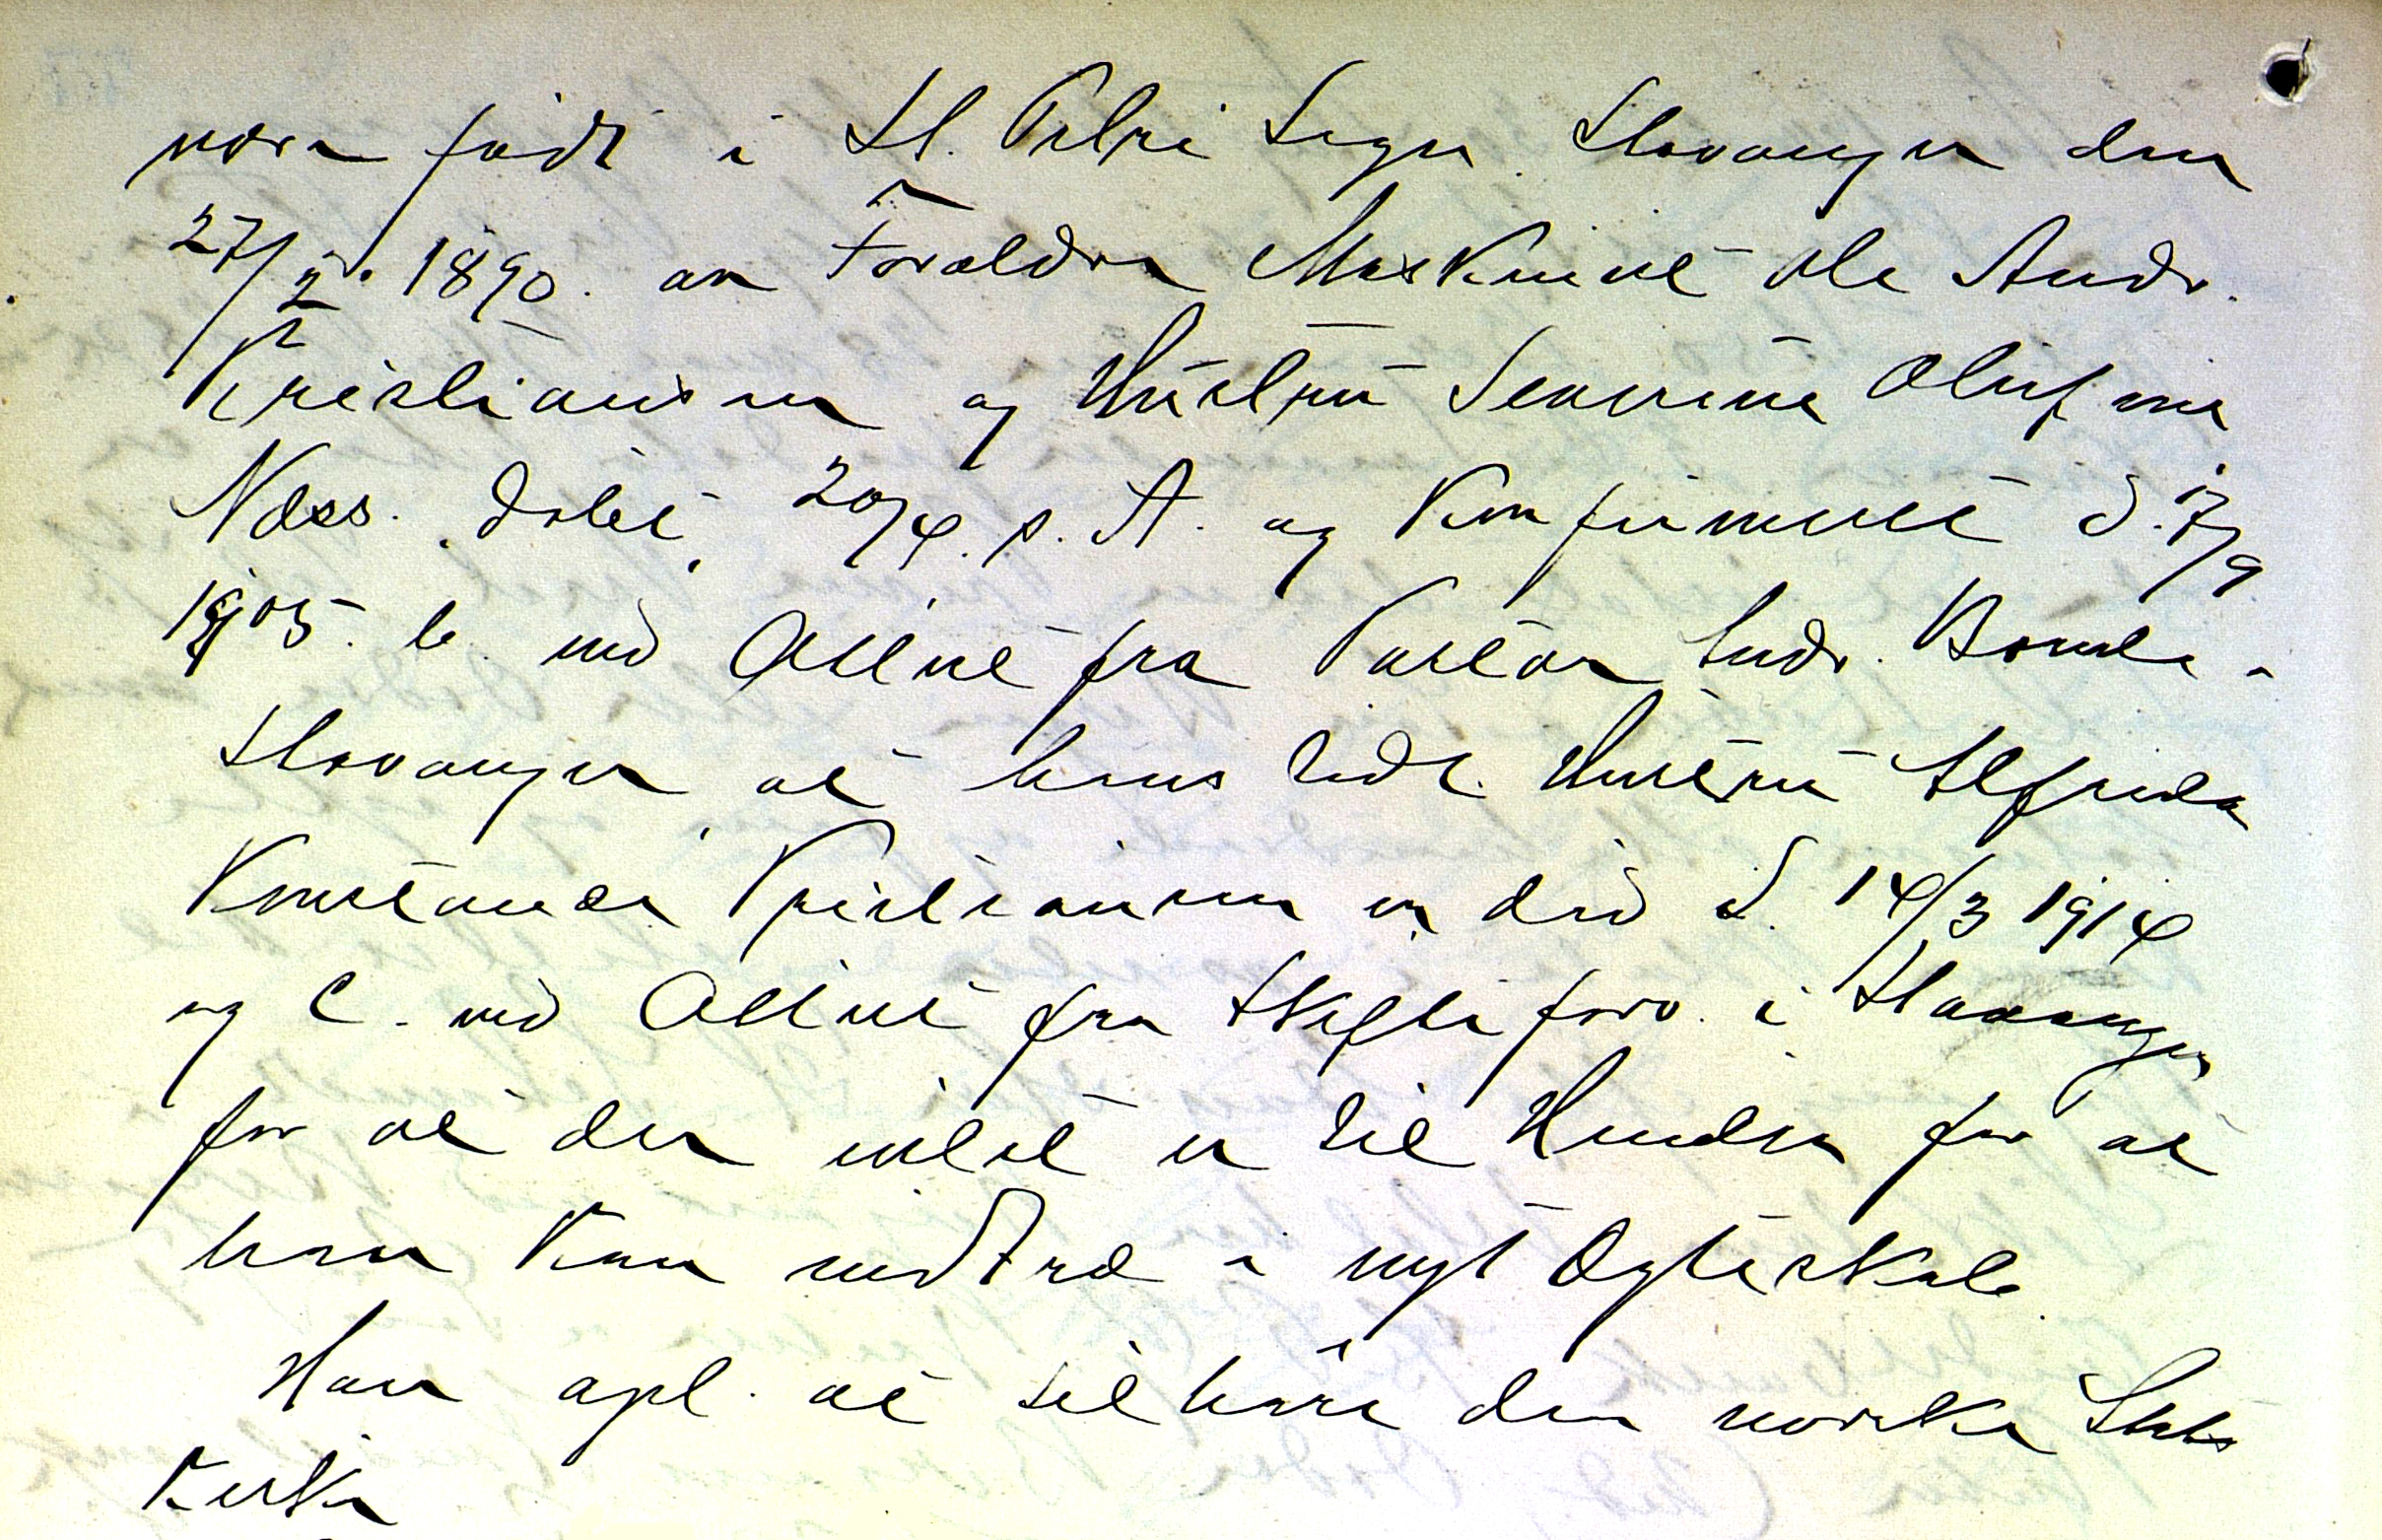 være født i St. Petri Sogn. Stavanger den
27/2. 1890. av Forældre Maskinist Ole Andr.
Kristiansen og Hustru Severine Olufine
Næss. døbt 20/4. s. A. og Konfirmeret d. 17/9
1905. b. ved Attest fra Pastor Andr.
Stavanger at hans sidste Hustru Alfreda
Konstance Kristiansen er død d. 14/3 1914
og c. ved Attest fra Skifteforv. i Stavanger
for at der intet er til Hinder for at
han kan indtræde i nyt Ægteskab.
Han opl. at tilhøre den norske Stats
Kirke